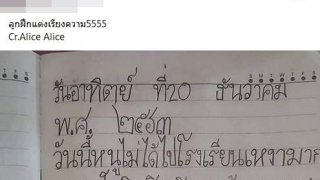 ลูกฝึกแต่งเรียงความ5555
Cr.Alice Alice
วันอาทิตย์ ที่20 ธันวาคม
พ.ศ. ๒๕๖๓
วันนี้หนูไม่ได้ไปโรงเรียนเหงามาก